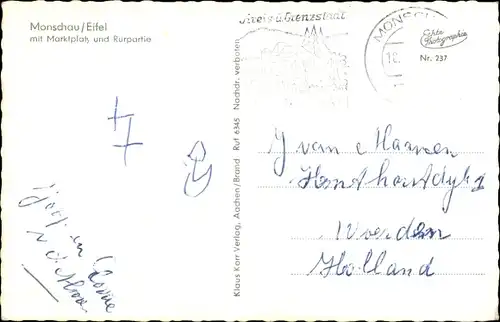 Monschau/Eifel
mit Marktplatz und Rurpartie
Kreis u. Grenzstadt
MONSCH
18.
Echte
Photographie
Nr. 237
Klaus Korr Verlag, Aachen/Brand Ruf 6345 Nachdr. verboten
J van Maanen
Honthorstdijk 1
Woerden
Holland
Joop en